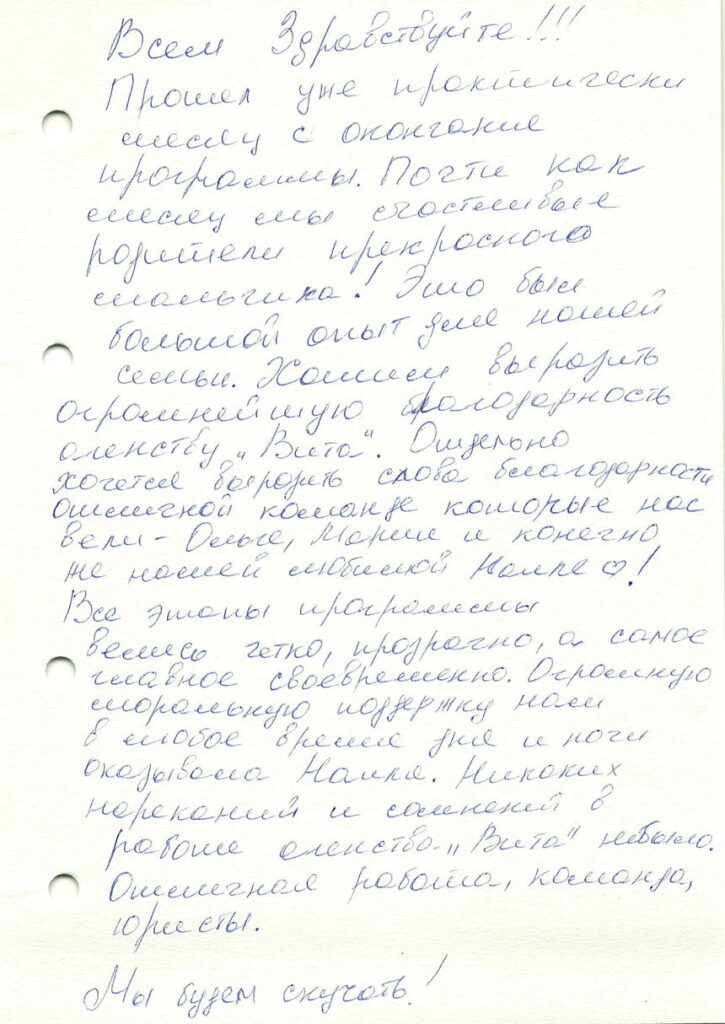 Всем Здравствуйте!!!
Прошел уже практически
месяц с окончание
программы. Почти как
месяц мы счастливые
родители прекрасного
мальчика! Это был
большой опыт для нашей
семьи. Хотим выразить
огромнейшую благодарность
агенству „Вита". Отдельно
хочется выразить слова благодарности
отличной команде которые нас
вели - Ольге, Марии и конечно
же нашей любимой Наиле ♡!
Все этапы программы
велись четко, прозрачно, а самое
главное своевременно. Огромную
моральную поддержку нам
в любое время дня и ночи
оказывала Наиля. Никаких
нареканий и сомнений в
работе агенства „Вита" небыло.
Отличная работа, команда,
юристы.
Мы будем скучать!